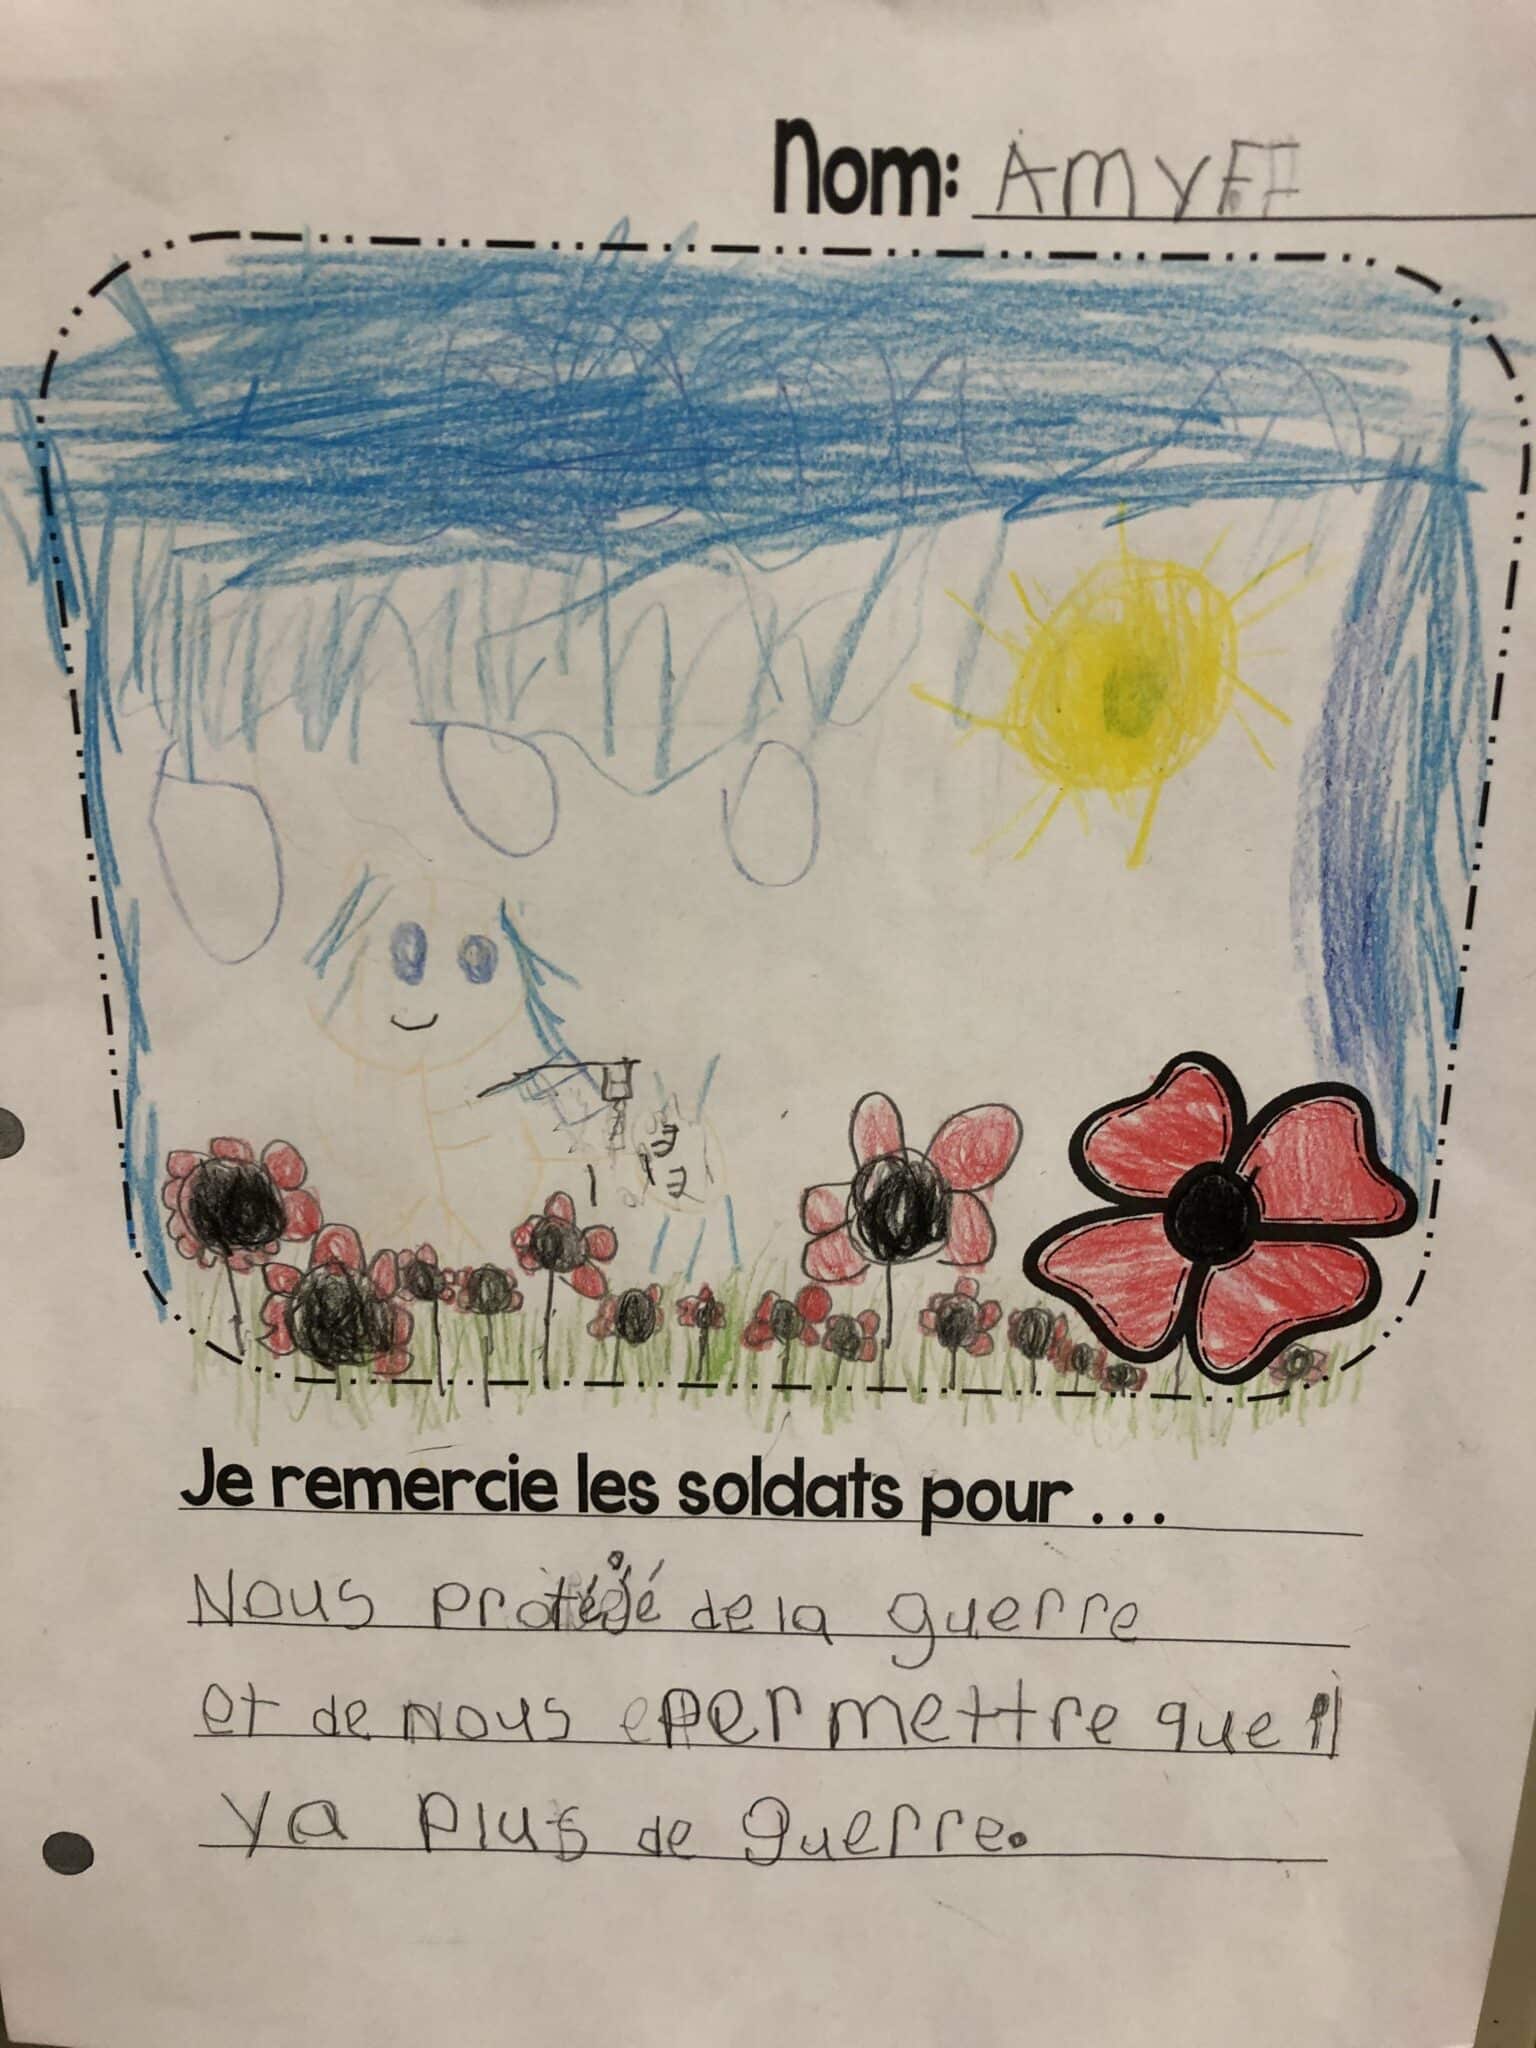 Nom: AMYEF
Je remercie les soldats pour ...
Nous protéjé de la guerre
et de nous permettre que il
ya plus de guerre.